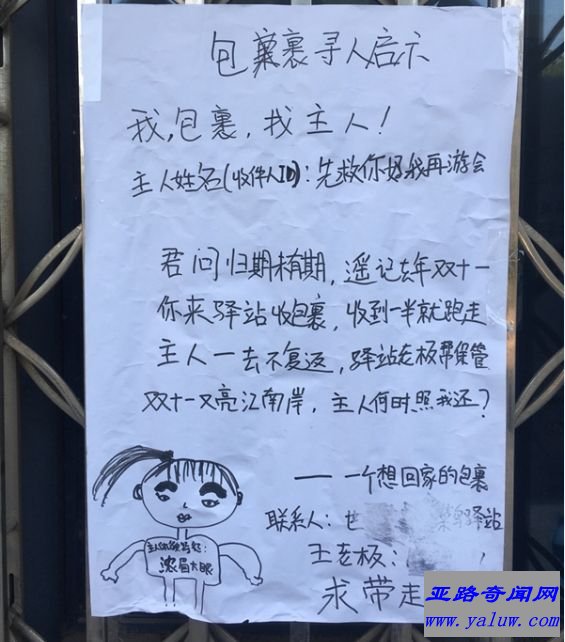 包裹寻人启示
我,包裹,找主人!
主人姓名(收件人ID):先救你好我再游会
君问归期未有期,遥记去年双十一
你来驿站收包裹,收到一半就跑走
主人一去不复返,驿站老板帮保管
双十一又亮江南岸,主人何时照我还?
——一个想回家的包裹
联系人:世 驿站
王老板:
求带走
主人你留意起:
浓眉大眼
亚路奇闻网
www.yaluw.com